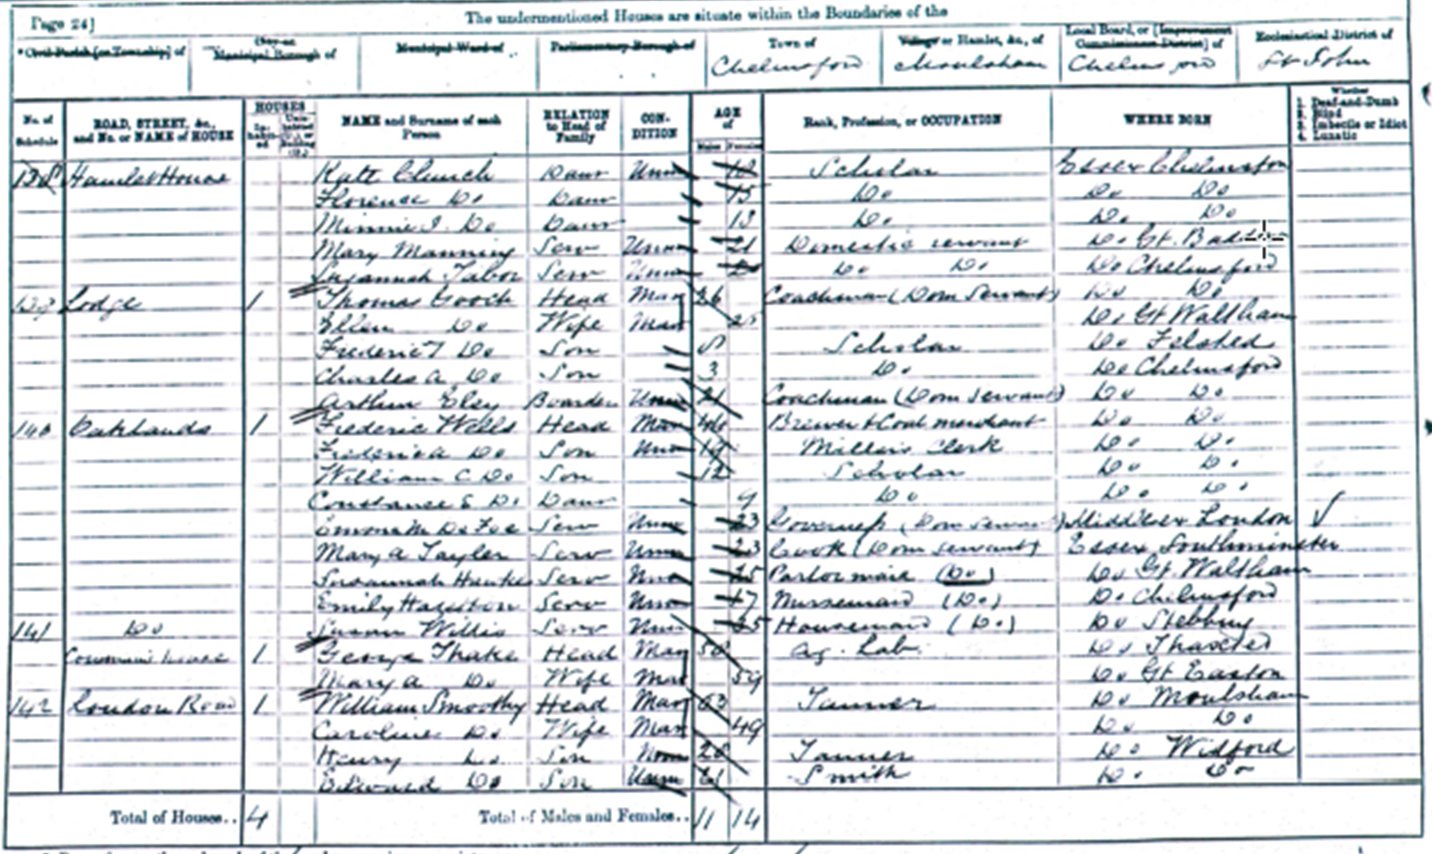 Page 24]
The undermentioned Houses are situate within the Boundaries of the
*Civil Parish [or Township] of Municipal Borough of Municipal Ward of Parliamentary Borough of Town of Village or Hamlet, &c., of Local Board, or [Improvement Commissioners District] of Ecclesiastical District of
Chelmsford Moulsham Chelmsford St John
No. of Schedule ROAD, STREET, &c., and No. or NAME of HOUSE HOUSES Inhabited NAME and Surname of each Person RELATION to Head of Family CONDITION AGE of Males Females Rank, Profession, or OCCUPATION WHERE BORN Whether 1. Deaf-and-Dumb 2. Blind 3. Imbecile or Idiot 4. Lunatic
138 Hamlet House Kate Church Daur Unm Scholar Essex Chelmsford
Florence Do Daur 15 Do Do Do
Minnie I. Do Daur 13 Do. Do. Do
Mary Manning Serv Unm 21 Domestic servant Do. Gt. Baddow
Susannah Tabor Serv Unm Do Do Do Chelmsford
139 Lodge 1 Thomas Gooch Head Mar 26 Coachman (Dom Servant) Do Do
Ellen Do Wife Mar 25 Do Gt Waltham
Do Son 8 Scholar Do Felsted
Charles A. Do Son 3 Do. Do Chelmsford
Arthur Elsy Boarder Unm 21 Coachman (Dom servant) Do Do
140 Oaklands 1 Frederic Wells Head Mar 46 Brewer & Coal merchant Do Do
Do Son Unm Millers Clerk Do Do
William C Do Son 12 Scholar Do Do
Constance E Do. Daur 9 Do. Do Do
Serv Unm 23 Governess (Dom servant) Middlesex London
Mary A Tayler Serv Unm 23 Cook (Dom servant) Essex Southminster
Serv Unm Parlormaid (Do) Do Gt. Waltham
Emily Serv Unm 17 Nursemaid (Do.) Do Chelmsford
141 Do Susan Willis Serv Unm Housemaid (Do.) Do Stebbing
1 George Thake Head Mar Ag. Lab. Do Thaxted
Mary A Do Wife Mar 59 Do Gt Easton
142 London Road 1 William Smoothy Head Mar 63 Tanner Do Moulsham
Caroline Do Wife Mar 49 Do Do
Henry Do Son Unm Tanner Do Widford
Edward Do Son Unm Smith Do. Do
Total of Houses.. 4 Total of Males and Females.. 11 14